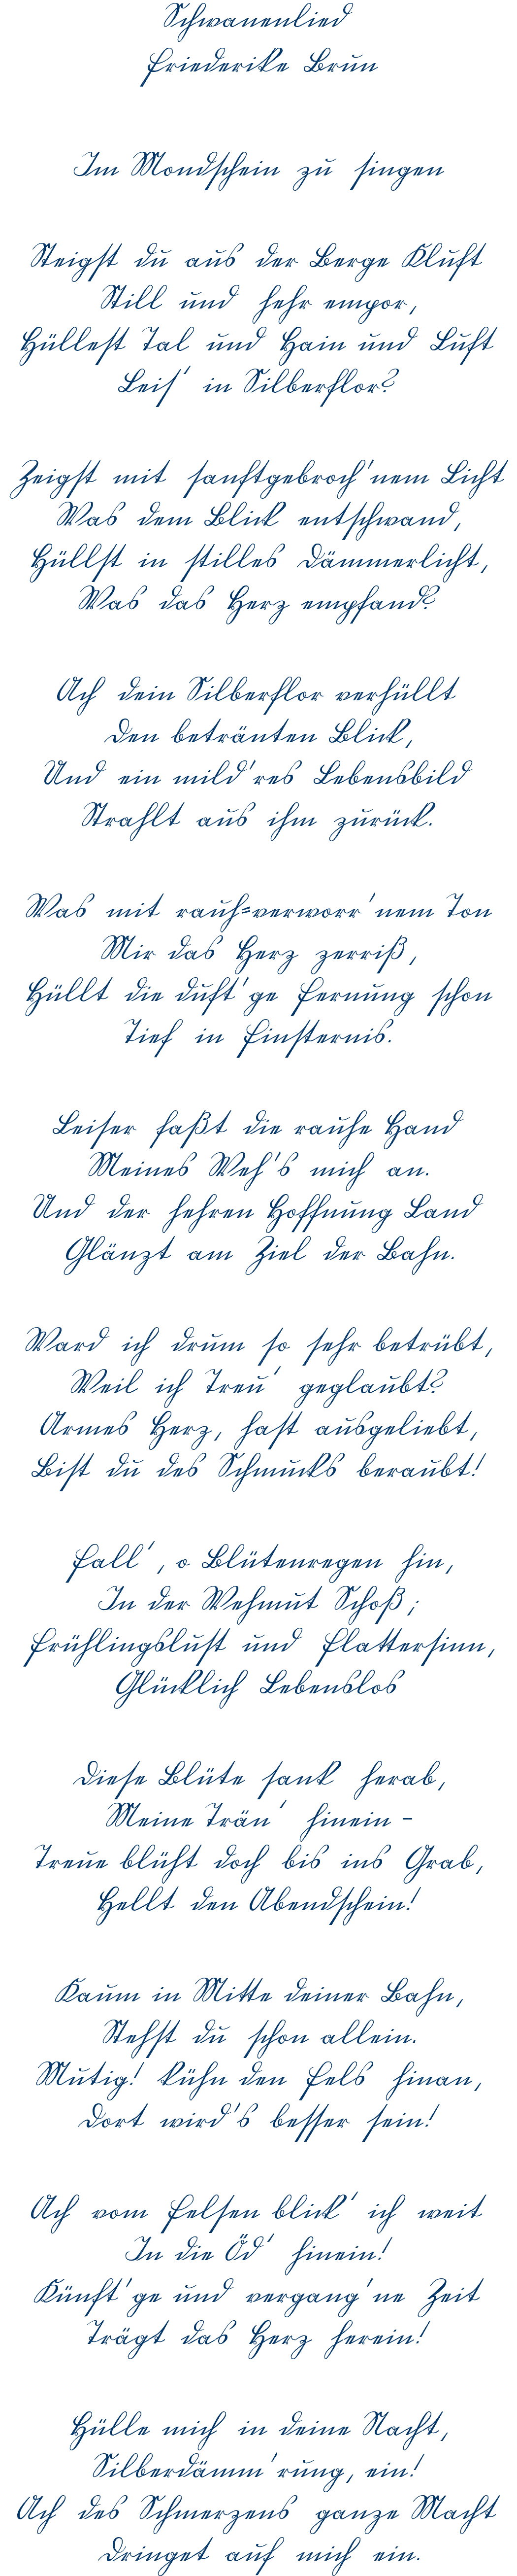 Schwanenlied
Friederike Brun
Im Mondschein zu singen
Steigst du aus der Berge Kluft
Still und hehr empor,
Hüllest Tal und Hain und Luft
Leis' in Silberflor?
Zeigst mit sanftgebroch'nem Licht
Was dem Blick entschwand,
Hüllst in stilles Dämmerlicht,
Was das Herz empfand?
Ach dein Silberflor verhüllt
Den betränten Blick,
Und ein mild'res Lebensbild
Strahlt aus ihm zurück.
Was mit rauh=verworr'nem Ton
Mir das Herz zerriß,
Hüllt die duft'ge Fernung schon
Tief in Finsternis.
Leiser faßt die rauhe Hand
Meines Weh's mich an.
Und der hehren Hoffnung Land
Glänzt am Ziel der Bahn.
Ward ich drum so sehr betrübt,
Weil ich Treu' geglaubt?
Armes Herz, hast ausgeliebt,
Bist du des Schmucks beraubt!
Fall', o Blütenregen hin,
In der Wehmut Schoß;
Frühlingslust und Flattersinn,
Glücklich Lebenslos
Diese Blüte sank herab,
Meine Trän' hinein -
Treue blüht doch bis ins Grab,
Hellt den Abendschein!
Kaum in Mitte deiner Bahn,
Stehst du schon allein.
Mutig! kühn den Fels hinan,
Dort wird's besser sein!
Ach vom Felsen blick' ich weit
In die Öd' hinein!
Künft'ge und vergang'ne Zeit
Trägt das Herz herein!
Hülle mich in deine Nacht,
Silberdämm'rung, ein!
Ach des Schmerzens ganze Macht
Dringet auf mich ein.